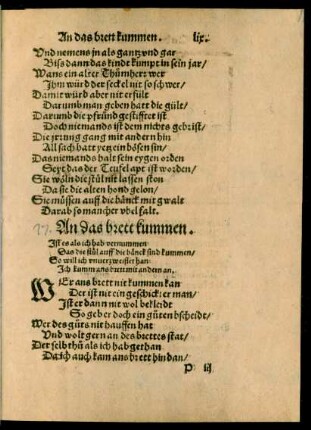 An das brett kummen. lix.
Vnd nemens jn als gantz vnd gar
Biss dann das kindt kumpt in sein jar/
Wans ein alter Thümherr wer
Ihm würd der seckel nit so schwer/
Damit würd aber nit erfült
Darumb man geben hatt die gült/
Darumb die pfründ gestifftet ist
Doch niemands ist dem nichts gebrist/
Die jrrung gang mit andern hin
All sach hatt yetz ein bösen sin/
Das niemands halt sein eygen orden
Seyt das der Teufel apt ist worden/
Sie wöln die stül nit lassen ston
Da sie die alten hond gelon/
Sie müssen auff die bänck mit gwalt
Darab so mancher vbel falt.
An das brett kummen.
Ist es als ich hab vernummen
Das die stül auff die bänck sind kummen/
So will ich vnuerzweifflet han
Ich kumm ans brett mit andern an.
WEr ans brett nit kummen kan
Der ist nit ein geschickter man/
Ist er dann nit wol bekleidt
So geb er doch ein güten bscheidt/
Wer des güts nit hauffen hat
Vnd wolt gern an des brettes stat/
Der selb thü als ich hab gethan
Da ich auch kam ans brett hindan/
P iij